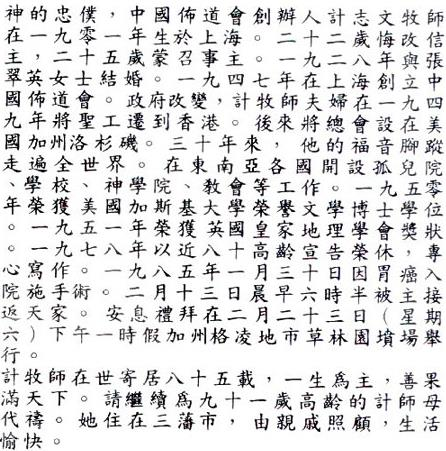 神的忠僕，中國佈道會創辦人計志文牧師
在一九零一年生於上海。二十二歲悔改信
主，二十五歲蒙召事主。一九二八年與張
翠英女士結婚。一九四七年在上海創立中
國佈道會。政府改變，計牧師夫婦在一九四
九年將聖工遷到香港。後來將總會設在美
國加州洛杉磯。三十年來，他的福音腳蹤
走遍全世界。在東南亞各國開設孤兒院
、學校、神學院、教會等工作。一九五零
年。榮獲美國加斯基大學榮譽文學博士學位
。一九五一年榮獲英國皇家地理學會獎狀
。一九七八年以近八十高齡宣告榮休，專
心寫作。一九八五年一月三十日因胃癌入
院施手術。二月十三日晨早六時半被主接
返天家。安息禮拜在二月二十三日（星期
六）下午一時假加州格凌地市草林園墳場舉
行。
計牧師在世寄居八十五載，一生爲主，善果
滿天下。請繼續爲九十一歲高齡的計師母
代禱。她住在三藩市，由親戚照顧，生活
愉快。